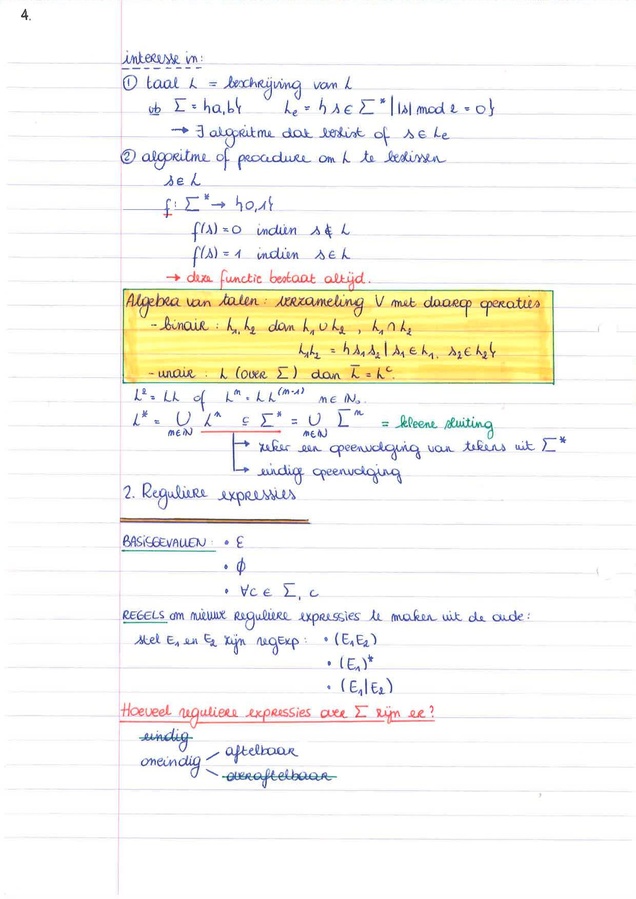 4.
interesse in:
① taal L = beschrijving van L
vb Σ = {a,b} Le = {s ∈ Σ* | |s| mod 2 = 0}
→ ∃ algoritme dat beslist of s ∈ Le
② algoritme of procedure om L te beslissen
s ∈ L
f: Σ* → {0,1}
f(s) = 0 indien s ∉ L
f(s) = 1 indien s ∈ L
→ deze functie bestaat altijd.
Algebra van talen: verzameling V met daarop operaties
- binair: L₁, L₂ dan L₁ ∪ L₂, L₁ ∩ L₂
L₁L₂ = {s₁s₂ | s₁ ∈ L₁, s₂ ∈ L₂}
- unair: L (over Σ) dan L̅ = Lᶜ
L² = LL of Lⁿ = L L⁽ⁿ⁻¹⁾ n ∈ ℕ₀
L* = ∪ Lⁿ ⊆ Σ* = ∪ Σⁿ = kleene sluiting
n∈ℕ n∈ℕ
→ zeker een opeenvolging van tekens uit Σ*
→ eindige opeenvolging
2. Reguliere expressies
BASISGEVALLEN: • ε
• ϕ
• ∀c ∈ Σ, c
REGELS om nieuwe reguliere expressies te maken uit de oude:
stel E₁ en E₂ zijn regExp: • (E₁E₂)
• (E₁)*
• (E₁|E₂)
Hoeveel reguliere expressies over Σ zijn er?
eindig
oneindig aftelbaar
overaftelbaar